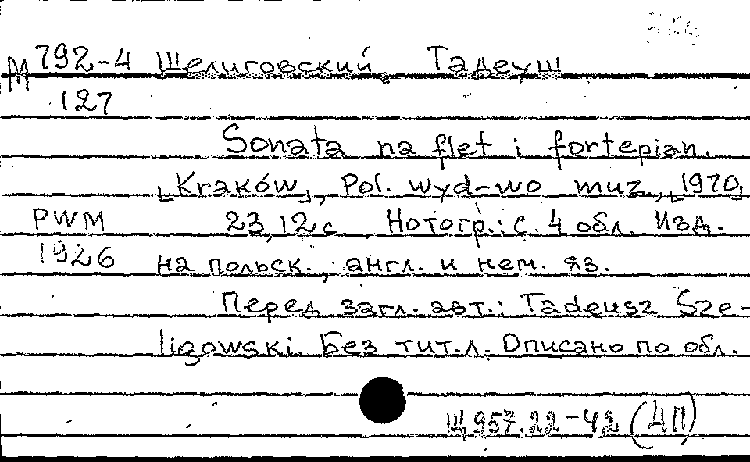 М 792-4 Шелиговский, Тадеуш
127
Sonata na flet i fortepian.
[Kraków], Pol. wyd-wo muz., [1970]
PWM 23,12 с. Нотогр.: с. 4 обл. Изд.
1926 на польск., англ. и нем. яз.
Перед загл. авт.: Tadeusz Sze-
ligowski. Без тит. л. Описано по обл.
Щ957.22-42 (4П)